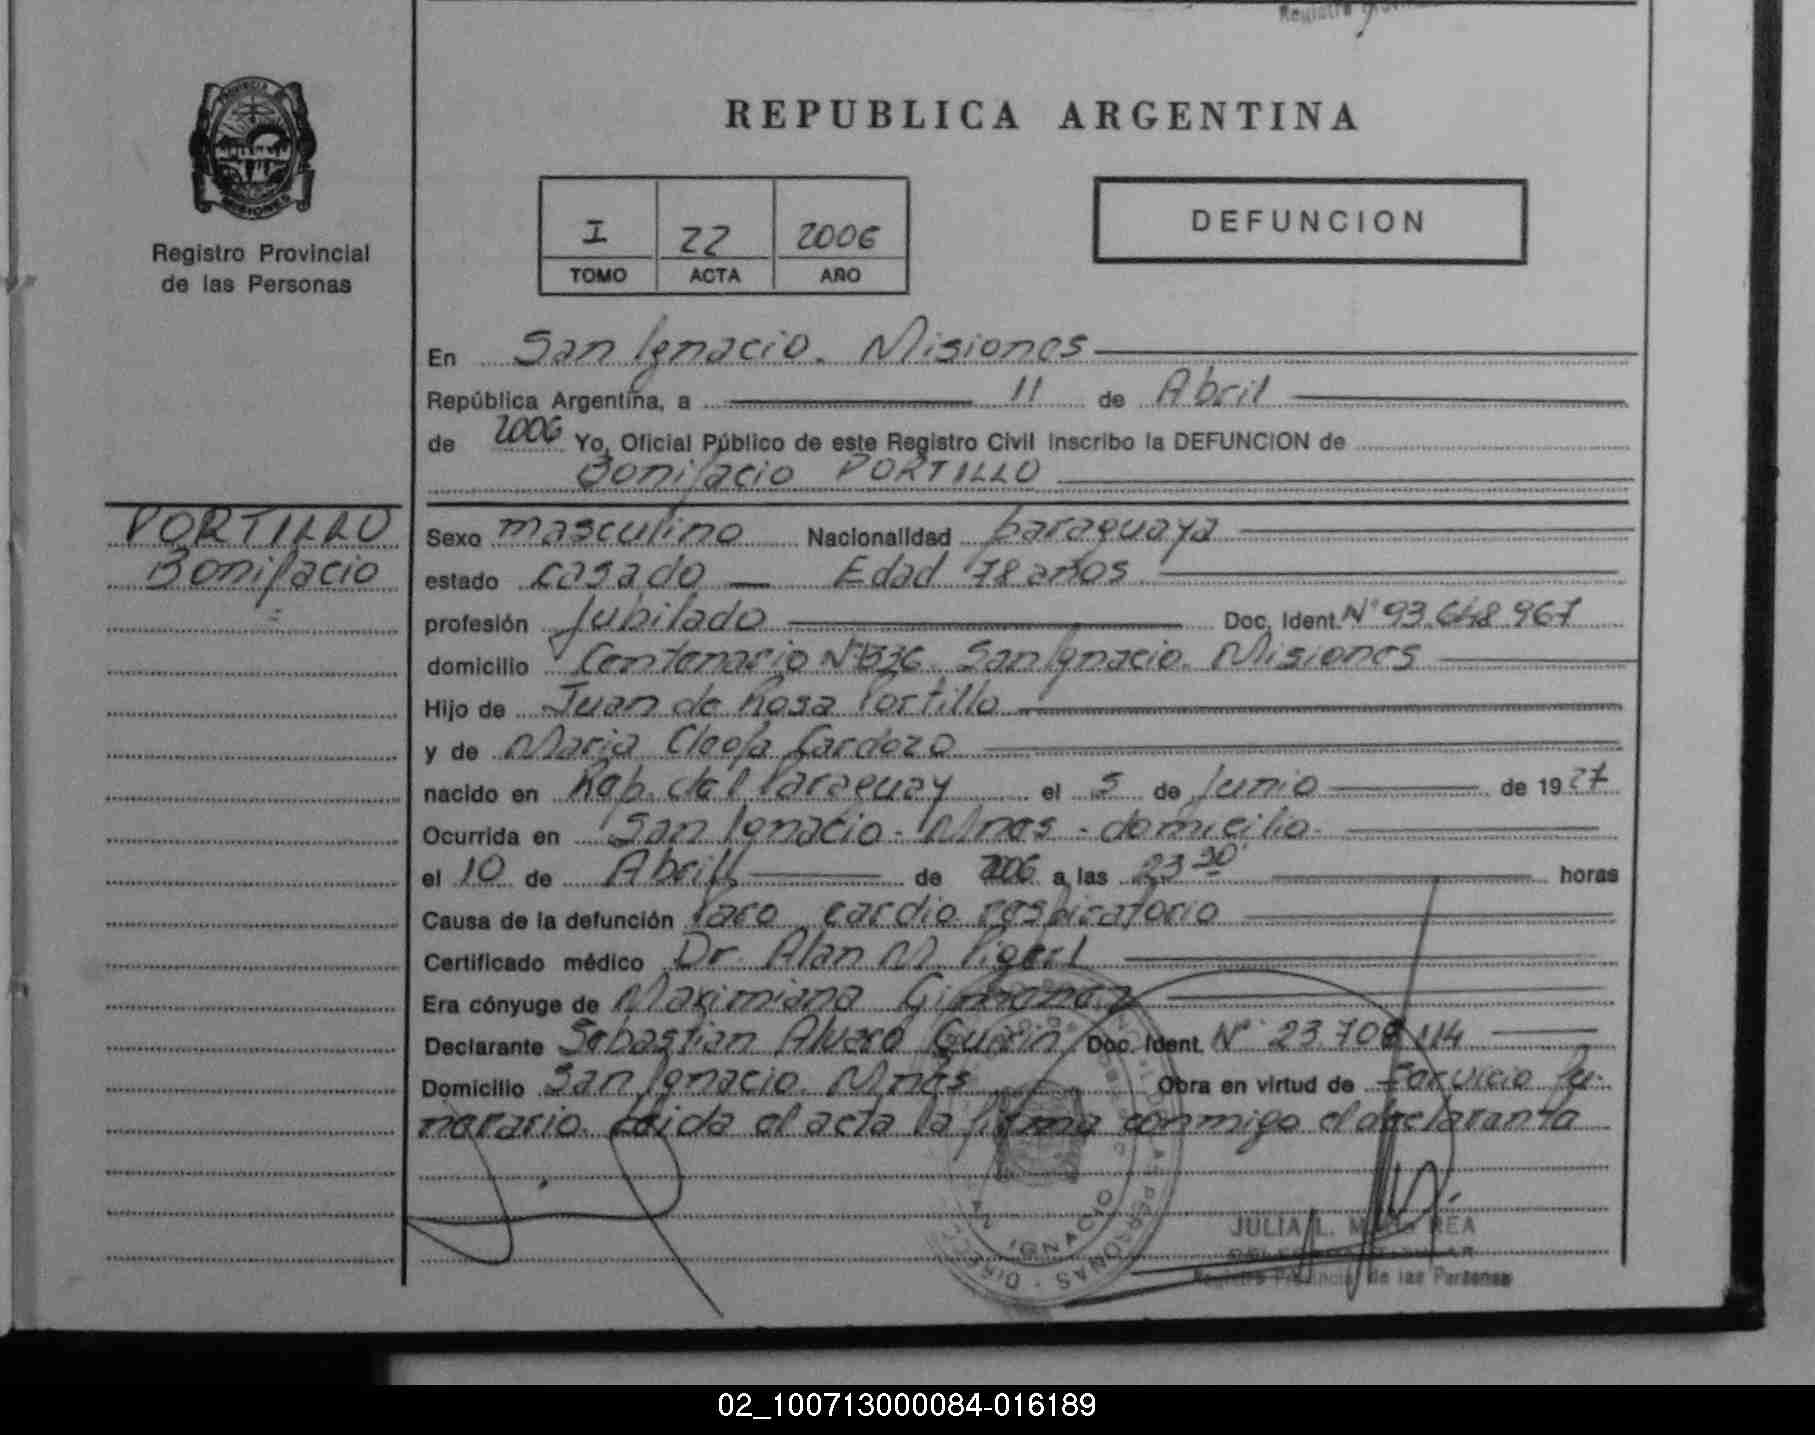 REPUBLICA ARGENTINA
PROVINCIA DE
MISIONES
Registro Provincial
de las Personas
I 22 2006
TOMO ACTA AÑO
DEFUNCION
En San Ignacio. Misiones
República Argentina, a 11 de Abril
de 2006 Yo, Oficial Público de este Registro Civil inscribo la DEFUNCION de
Bonifacio PORTILLO
PORTILLO
Bonifacio
Sexo masculino Nacionalidad paraguaya
estado casado Edad 78 años
profesión Jubilado Doc. Ident. Nº 93.648.967
domicilio Centenario Nº San Ignacio. Misiones
Hijo de Juan de Rosa Portillo
y de Maria Cleofa Cardozo
nacido en Rep. del Paraguay el 5 de Junio de 1927
Ocurrida en San Ignacio - Mnes - domicilio.
el 10 de Abril de 2006 a las 23 30 horas
Causa de la defunción Paro cardio respiratorio
Certificado médico Dr. Alan M.
Era cónyuge de Maximiana Gimenez
Declarante Sebastian Alvaro Doc. Ident. Nº 23.708.114
Domicilio San Ignacio. Mnes Obra en virtud de Servicio fu-
nerario. Leida el acta la firma conmigo el declarante
JULIA L.
Registro Provincial de las Personas
02_100713000084-016189